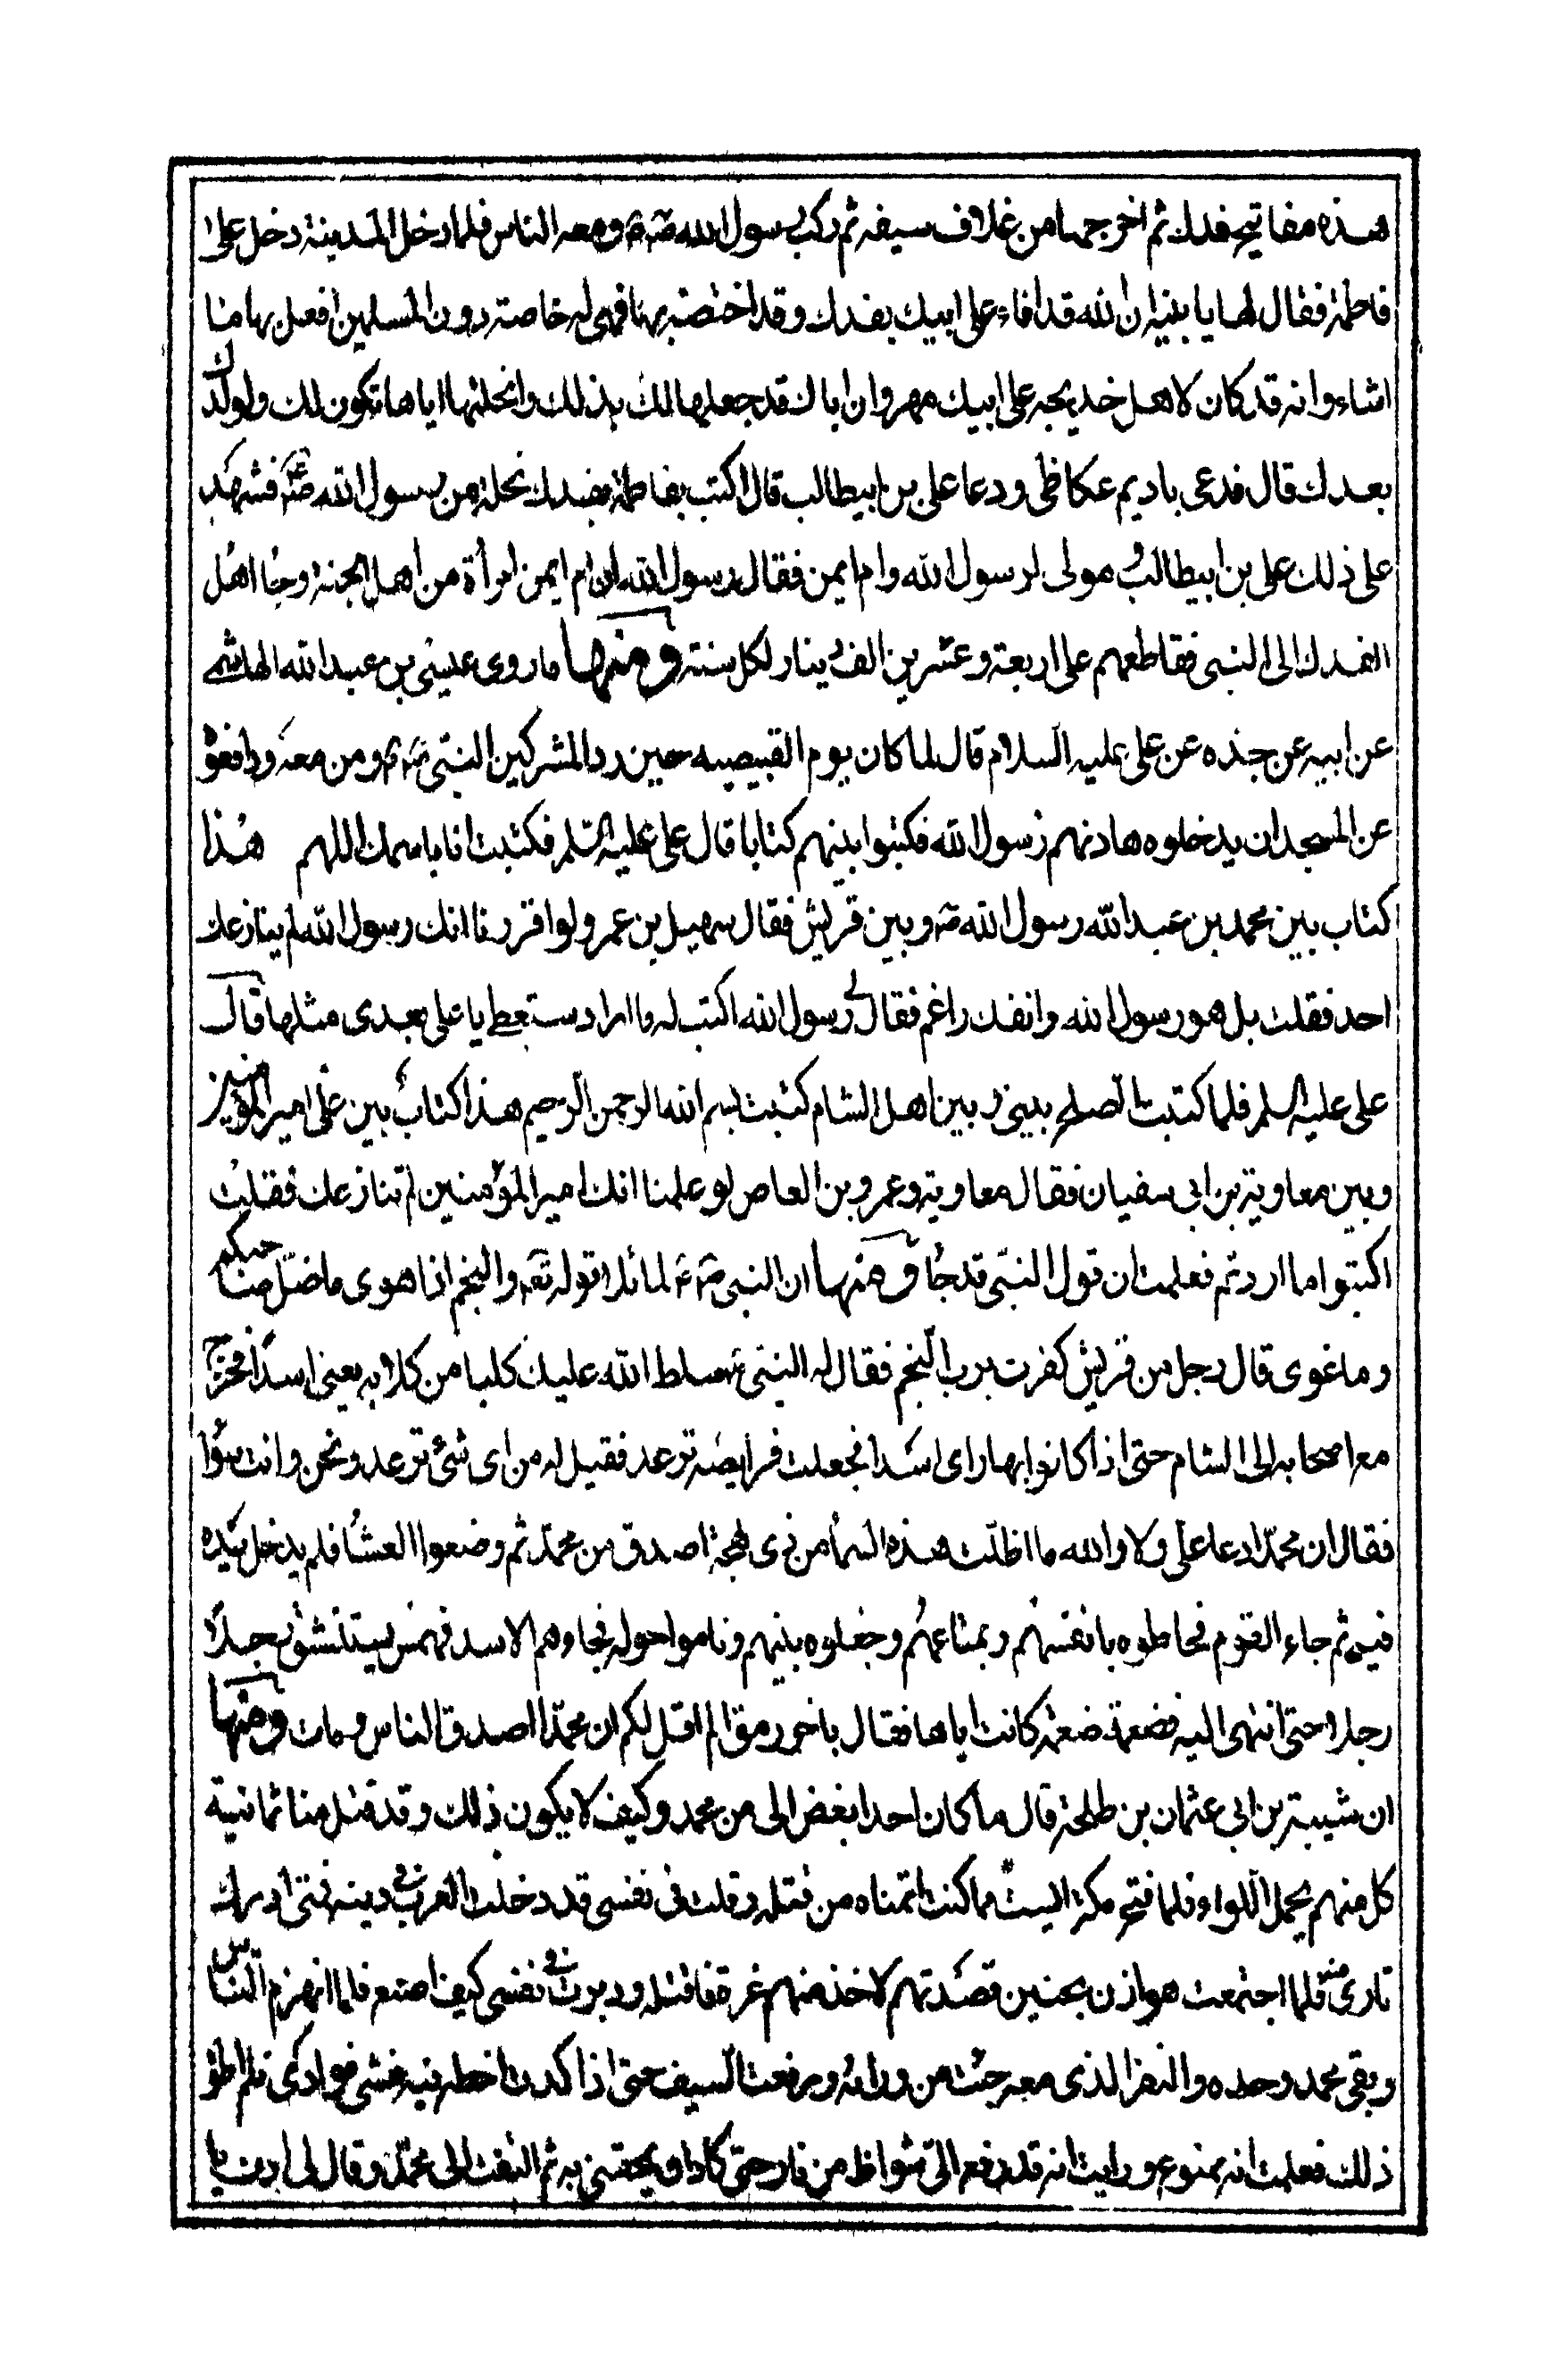 هذه مفاتيح فدك ثم اخرجها من غلاف سيفه ثم ركب رسول الله ص م ومعه الناس فلما دخل المدينة دخل على
فاطمة فقال لها يا بنية ان الله قد افاء على ابيك بفدك وقد اختصه بها فهي له خاصة دون المسلمين افعل بها ما
اشاء وانه قد كان لاهل خديجه على ابيك مهر وان اباك قد جعلها لك بذلك وانحلتها اياها تكون لك ولولدك
بعدك قال فدعى باديم عكاظي ودعا على بن ابيطالب قال اكتب بفاطمة بفدك نحلة من رسول الله ص فشهد
على ذلك على بن ابيطالب و مولى لرسول الله وام ايمن فقال رسول الله ان ام ايمن امرأة من اهل الجنة وجاا اهل
الفدك الى النبى فقاطعهم على اربعة وعشرين الف دينار لكل سنته ومنها ما روى عيسى بن عبد الله الهاشمي
عن ابيه عن جده عن على عليه السلام قال لما كان يوم القبيصيه حين رد المشركين النبى ص م ومن معه ودافعوا
عن المسجد ان يدخلوه هادنهم رسول الله فكتبوا بينهم كتابا قال على عليه السلم فكتبت انا باسمك اللهم هذا
كتاب بين محمد بن عبد الله رسول الله ص وبين قريش فقال سهيل بن عمرو لو اقررنا انك رسول الله لم ينازعك
احد فقلت بل هو رسول الله وانفك راغم فقال لى رسول الله اكتب له ما اراد ستعطى يا على بعدى مثلها قال
على عليه السلم فلما كتبت الصلح بينى وبين اهل الشام كتبت بسم الله الرحمن الرحيم هذا كتاب بين على امير المؤمنين
وبين معاوية بن ابى سفيان فقال معاوية وعمرو بن العاص لو علمنا انك امير المؤمنين لم تنازعك فقلت
اكتبوا ما اردتم فعلمت ان قول النبى قد جاا ومنها ان النبى ص م لما تلا قوله تعه والنجم اذا هوى ما ضل صاحبكم
وما غوى قال رجل من قريش كفرت برب النجم فقال له النبى سلط الله عليك كلبا من كلابه يعنى اسدا فخرج
مع اصحابه الى الشام حتى اذا كانوا بها راى اسدا فجعلت فرايصه ترعد فقيل له من اى شئ ترعد ونحن وانت سوا
فقال ان محمدا دعا على ولا والله ما اظلت هذه السما من ذى لهجة اصدق من محمد ثم وضعوا العشا فلم يدخل يده
فيه ثم جاء القوم فحاطوه بانفسهم وبمتاعهم وجعلوه بينهم وناموا حوله فجاوهم الاسد فهمس يستنشق رجلا
رجلا حتى انتهى اليه فضعمه ضعمة كانت اياها فقال باخر رمق الم اقل لكم ان محمدا اصدق الناس ومات ومنها
ان شيبة بن ابى عثمان بن طلحة قال ما كان احدا بغض الى من محمد وكيف لا يكون ذلك وقد قتل منا ثمانية
كل منهم يحمل اللواء فلما فتح مكة ايست مما كنت اتمناه من قتله وقلت فى نفسى قد دخلت العرب فى دينه فمتى ادرك
ثارى منه فلما اجتمعت هوازن بحنين قصدتهم لاخذ منهم غرة فاقتله ودبرت فى نفسى كيف اصنع فلما انهزم الناس
وبقى محمد وحده والنفر الذى معه جئت من ورائه ورفعت السيف حتى اذا كدت اخطه فيه غشى فوادى فلم اطق
ذلك فعلمت انه ممنوع ورايت انه قد رفع الى شواظ من نار حتى كاد يمحقنى به ثم التفت الى محمد وقال لى ادن يا